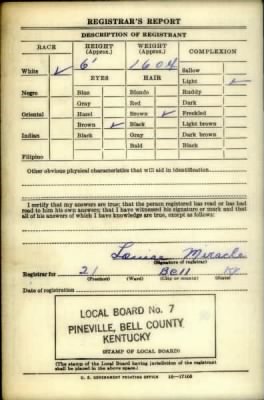 REGISTRAR'S REPORT
DESCRIPTION OF REGISTRANT
RACE HEIGHT (Approx.) WEIGHT (Approx.) COMPLEXION
White ✓ 6' 160# Sallow
EYES HAIR Light ✓
Negro Blue Blonde Ruddy
Gray Red Dark
Oriental Hazel Brown ✓ Freckled
Brown ✓ Black Light brown
Indian Black Gray Dark brown
Bald Black
Filipino
Other obvious physical characteristics that will aid in identification
I certify that my answers are true; that the person registered has read or has had
read to him his own answers; that I have witnessed his signature or mark and that
all of his answers of which I have knowledge are true, except as follows:
Miracle
(Signature of registrar)
Registrar for 21 Bell Ky
(Precinct) (Ward) (City or county) (State)
Date of registration
LOCAL BOARD No. 7
PINEVILLE, BELL COUNTY
KENTUCKY
(STAMP OF LOCAL BOARD)
(The stamp of the Local Board having jurisdiction of the registrant
shall be placed in the above space.)
U. S. GOVERNMENT PRINTING OFFICE